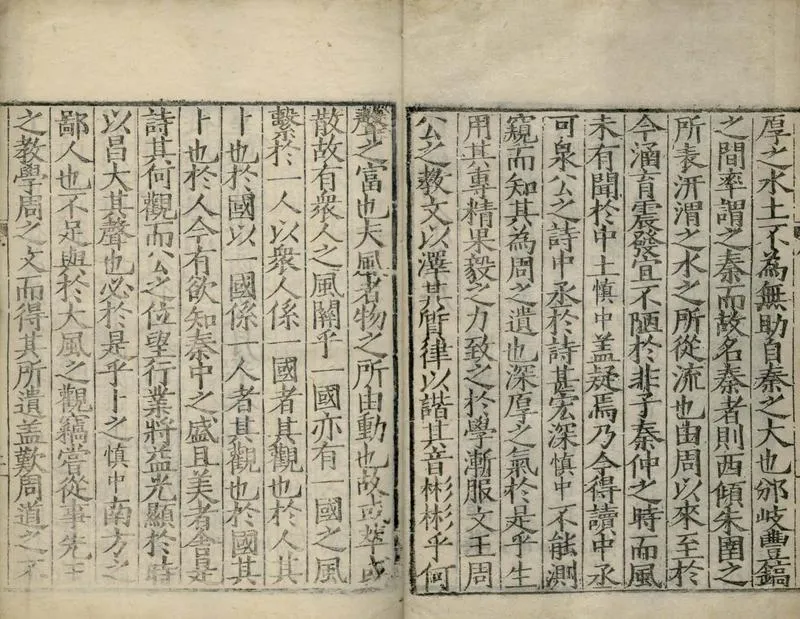 厚之水土不為無助自秦之大也邠岐豐鎬
之間率謂之秦而故名秦者則西傾朱圉之
所表汧渭之水之所從流也由周以來至於
今涵育震發宜不陋於非子秦仲之時而風
未有聞於中土慎中盖疑焉乃今得讀中丞
可泉公之詩中丞於詩甚宏深慎中不能測
窺而知其為周之遺也深厚之氣於是乎生
用其專精果毅之力致之於學漸服文王周
公之教文以澤其質律以諧其音彬彬乎何
聲之富也夫風者物之所由動也故或萃或
散故有衆人之風關乎一國亦有一國之風
繫於一人以衆人係一國者其觀也於人其
卜也於國以一國係一人者其觀也於國其
卜也於人今有欲知秦中之盛且美者舍是
詩其何觀而公之位望行業將益光顯於時
以昌大其聲也必於是乎卜之慎中南方之
鄙人也不足與於大風之觀竊嘗從事先王
之教學周之文而得其所遺盖歎周道之不